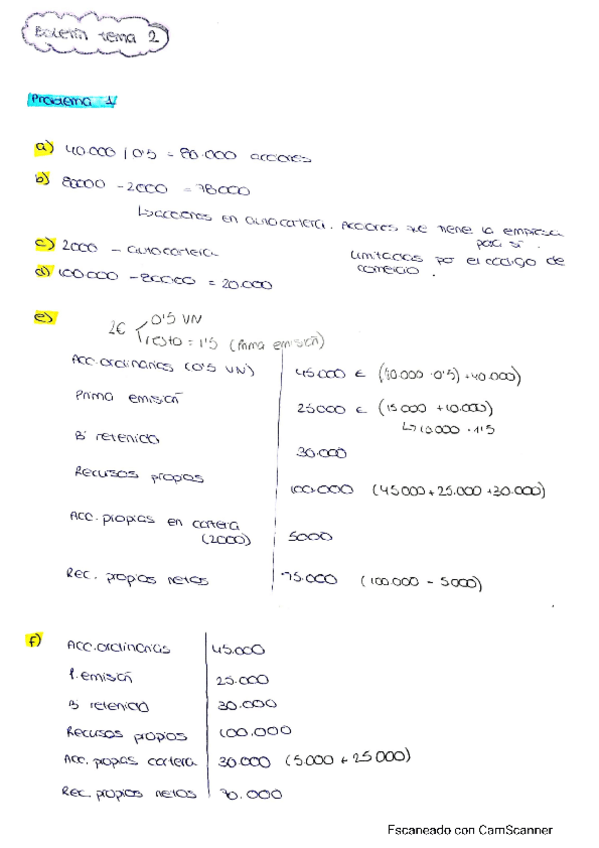 Boletín tema 2
Problema 1
a) 40.000 / 0'5 = 80.000 acciones
b) 80000 - 2000 = 78000
↳ acciones en autocartera. Acciones que tiene la empresa
para sí.
c) 2000 - autocartera
limitadas por el código de
comercio.
d) 100.000 - 80.000 = 20.000
e)
2€ 0'5 VN
resto = 1'5 (Prima emisión)
Acc. ordinarias (0'5 VN) 45.000 € (10.000 · 0'5) + 40.000)
Prima emisión 25000 € (15000 + 10.000)
↳ 10000 · 1'5
Bº retenido 30.000
Recursos propios 100.000 (45000 + 25.000 + 30.000)
Acc. propias en cartera
(2000) 5000
Rec. propios netos 95.000 (100 000 - 5000)
f) Acc. ordinarias 45.000
P. emisión 25.000
B retenido 30.000
Recursos propios 100.000
Acc. propias cartera 30.000 (5000 + 25000)
Rec. propios netos 70.000
Escaneado con CamScanner